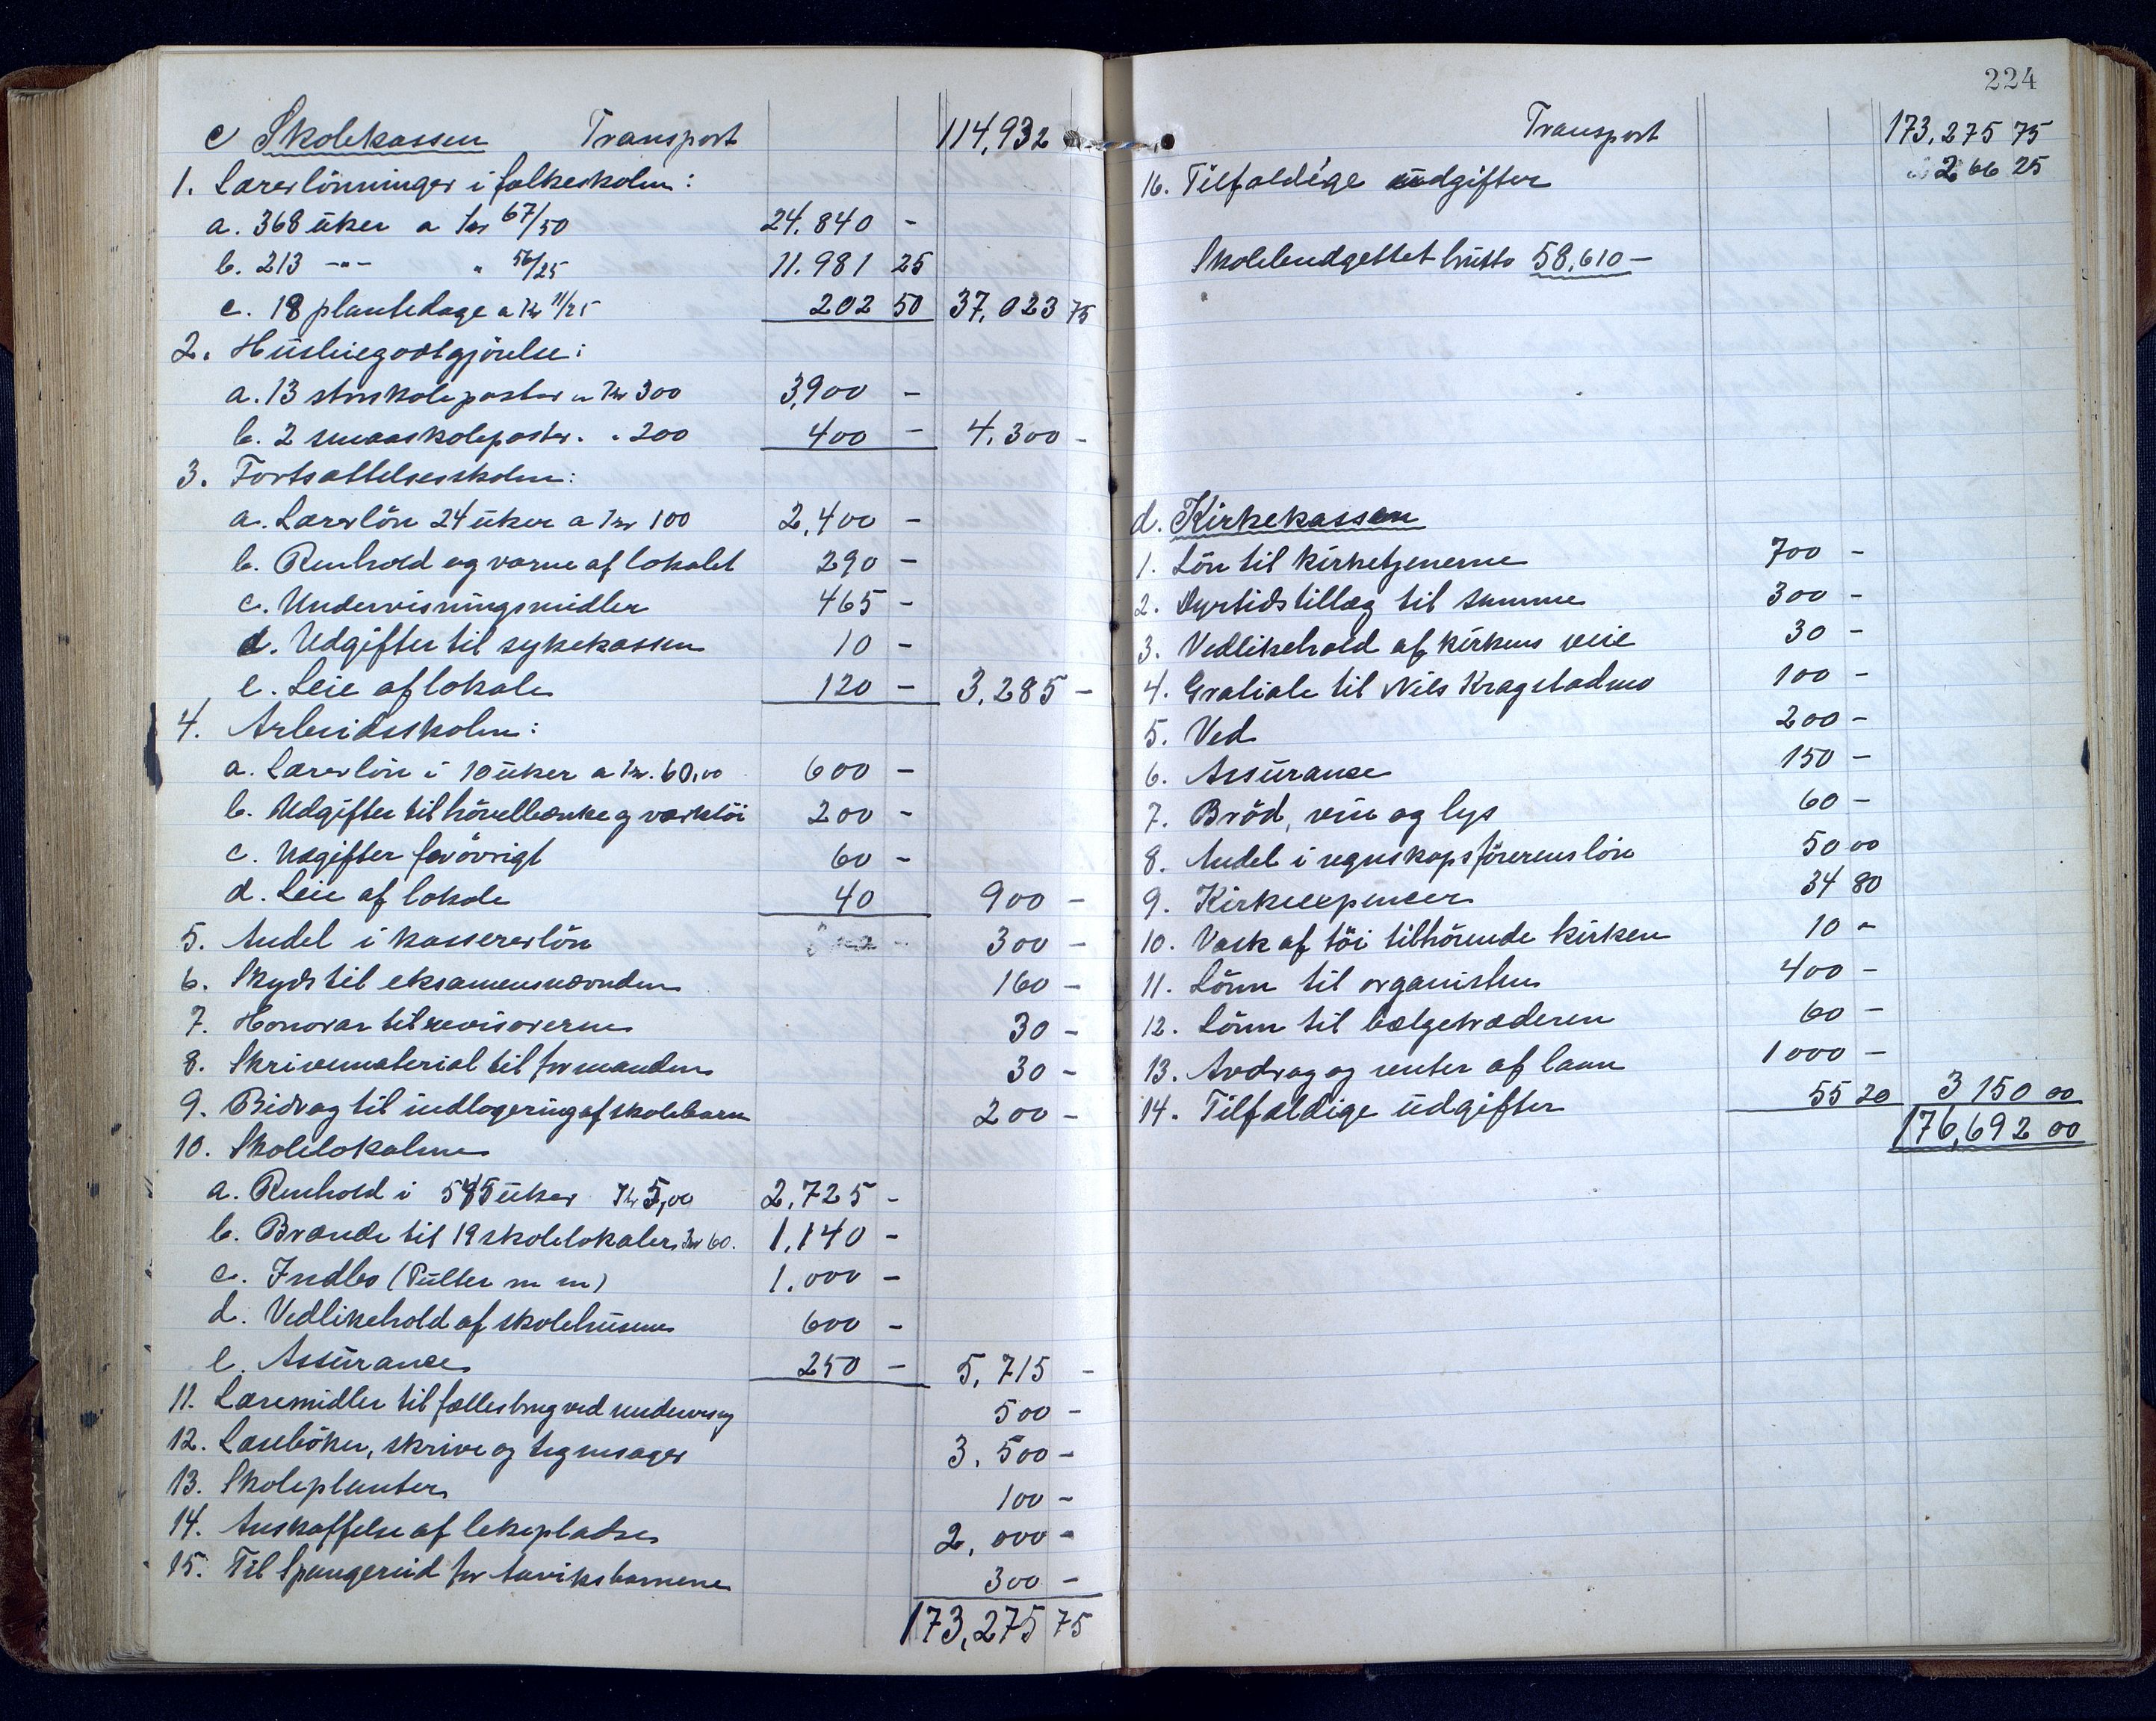 c Skolekassen Transport 114,932
1. Lærerlönninger i folkeskolen:
a. 368 uker a kr 67/50 24.840 -
b. 213 -"- " 56/25 11.981 25
c. 18 plantedage a kr 11/25 202 50 37,023 75
2. Husleiegodtgjörelse:
a. 13 storskoleposter a kr 300 3,900 -
b. 2 smaaskoleposter " " 200 400 - 4.300 -
3. Fortsættelsesskolen:
a. Lærerlön 24 uker a kr 100 2,400 -
b. Renhold og varme af lokalet 290 -
c. Undervisningsmidler 465 -
d. Udgifter til sykekassen 10 -
e. Leie af lokale 120 - 3.285 -
4. Arbeidsskolen:
a. Lærerlön i 10 uker a kr. 60,00 600 -
b. Udgifter til hövelbænke og værktöi 200 -
c. Udgifter forövrigt 60 -
d. Leie af lokale 40 900 -
5. Andel i kassererlön 300 -
6. Skyds til eksamensnævnden 160 -
7. Honorar til revisorerne 30 -
8. Skrivemateriál til formanden 30 -
9. Bidrag til indlogering af skolebarn 200 -
10. Skolelokalerne
a. Renhold i 545 uker kr 5,00 2.725 -
b. Brænde til 19 skolelokaler kr 60. 1.140 -
c. Indbo (Pulter m m) 1.000 -
d. Vedlikehold af skolehusene 600 -
e. Assurance 250 - 5,715 -
11. Læremidler til fællesbrug ved undervisng 500 -
12. Læsebøker, skrive og tegnesager 3.500 -
13. Skoleplanter 100 -
14. Anskaffelse af lekepladse 2,000 -
15. Til Spangereid for barnene 300 -
173,275 75
224
Transport 173,275 75
16. Tilfældige udgifter 266 25
Skolebudgettet brutto 58,610 -
d. Kirkekassen
1. Lön til kirketjenerne 700 -
2. Dyrtidstillæg til samme 300 -
3. Vedlikehold af kirkens veie 30 -
4. Gratiale til Nils Kragstadmo 100 -
5. Ved 200 -
6. Assurance 150 -
7. Bröd, vin og lys 60 -
8. Andel i regnskapsförerens lön 50 00
9. Kirkeexpencer 34 80
10. Vask af töi tilhörende kirken 10 -
11. Lönn til organisten 400 -
12. Lönn til bælgetræderen 60 -
13. Avdrag og renter af laan 1000 -
14. Tilfældige udgifter 55 20 3 150 00
176,692 00